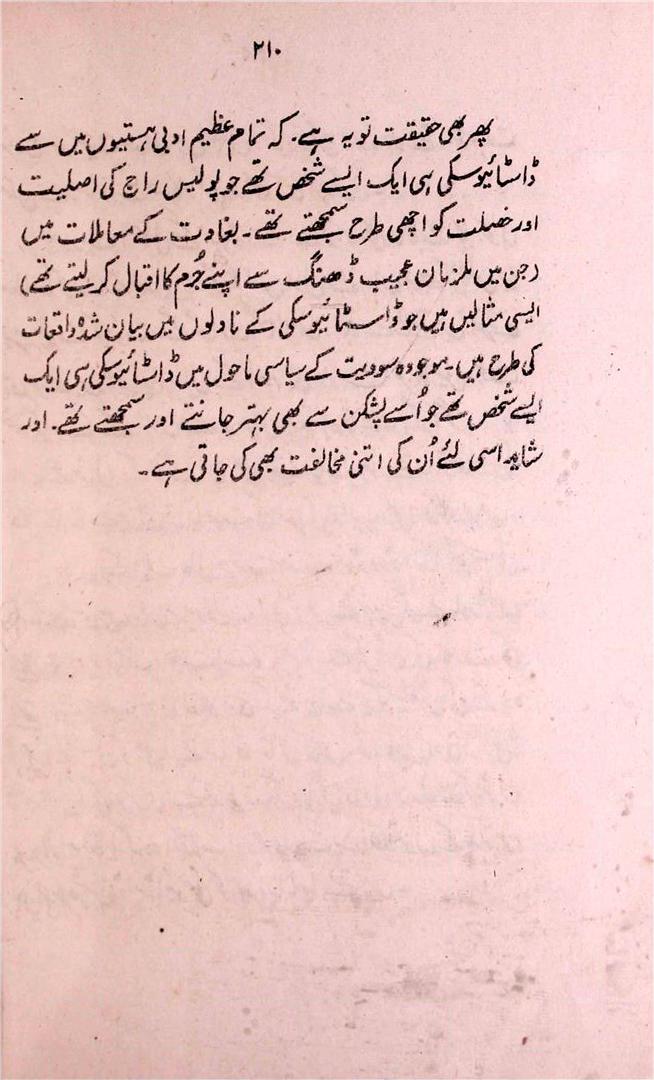 ۲۱۰
پھر بھی حقیقت تو یہ ہے۔ کہ تمام عظیم ادبی ہستیوں میں سے
ڈاسٹائیوسکی ہی ایک ایسے شخص تھے جو پولیس راج کی اصلیت
اور خصلت کو اچھی طرح سمجھتے تھے۔ بغاوت کے معاملات میں
(جن میں ملزمان عجیب ڈھنگ سے اپنے جُرم کا اقبال کر لیتے تھے)
ایسی مثالیں ہیں جو ڈاسٹائیوسکی کے ناولوں میں بیان شدہ واقعات
کی طرح ہیں۔ موجودہ سوویت کے سیاسی ماحول میں ڈاسٹائیوسکی ہی ایک
ایسے شخص تھے جو اُسے پشکن سے بھی بہتر جانتے اور سمجھتے تھے۔ اور
شاید اسی لئے اُن کی اتنی مخالفت بھی کی جاتی ہے۔